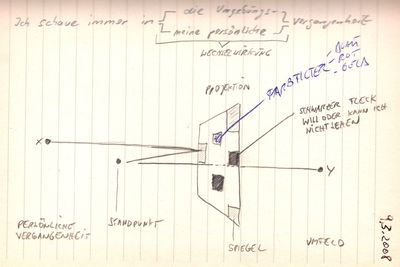 Ich schaue immer in die Umgebungs-
meine persönliche Vergangenheit
WECHSELWIRKUNG
PROJEKTION
FARBFILTER
BLAU
ROT
GELB
SCHWARZER FLECK
WILL ODER KANN ICH
NICHT SEHEN
X
Y
PERSÖNLICHE
VERGANGENHEIT
STANDPUNKT
SPIEGEL
UMFELD
9.3.2008